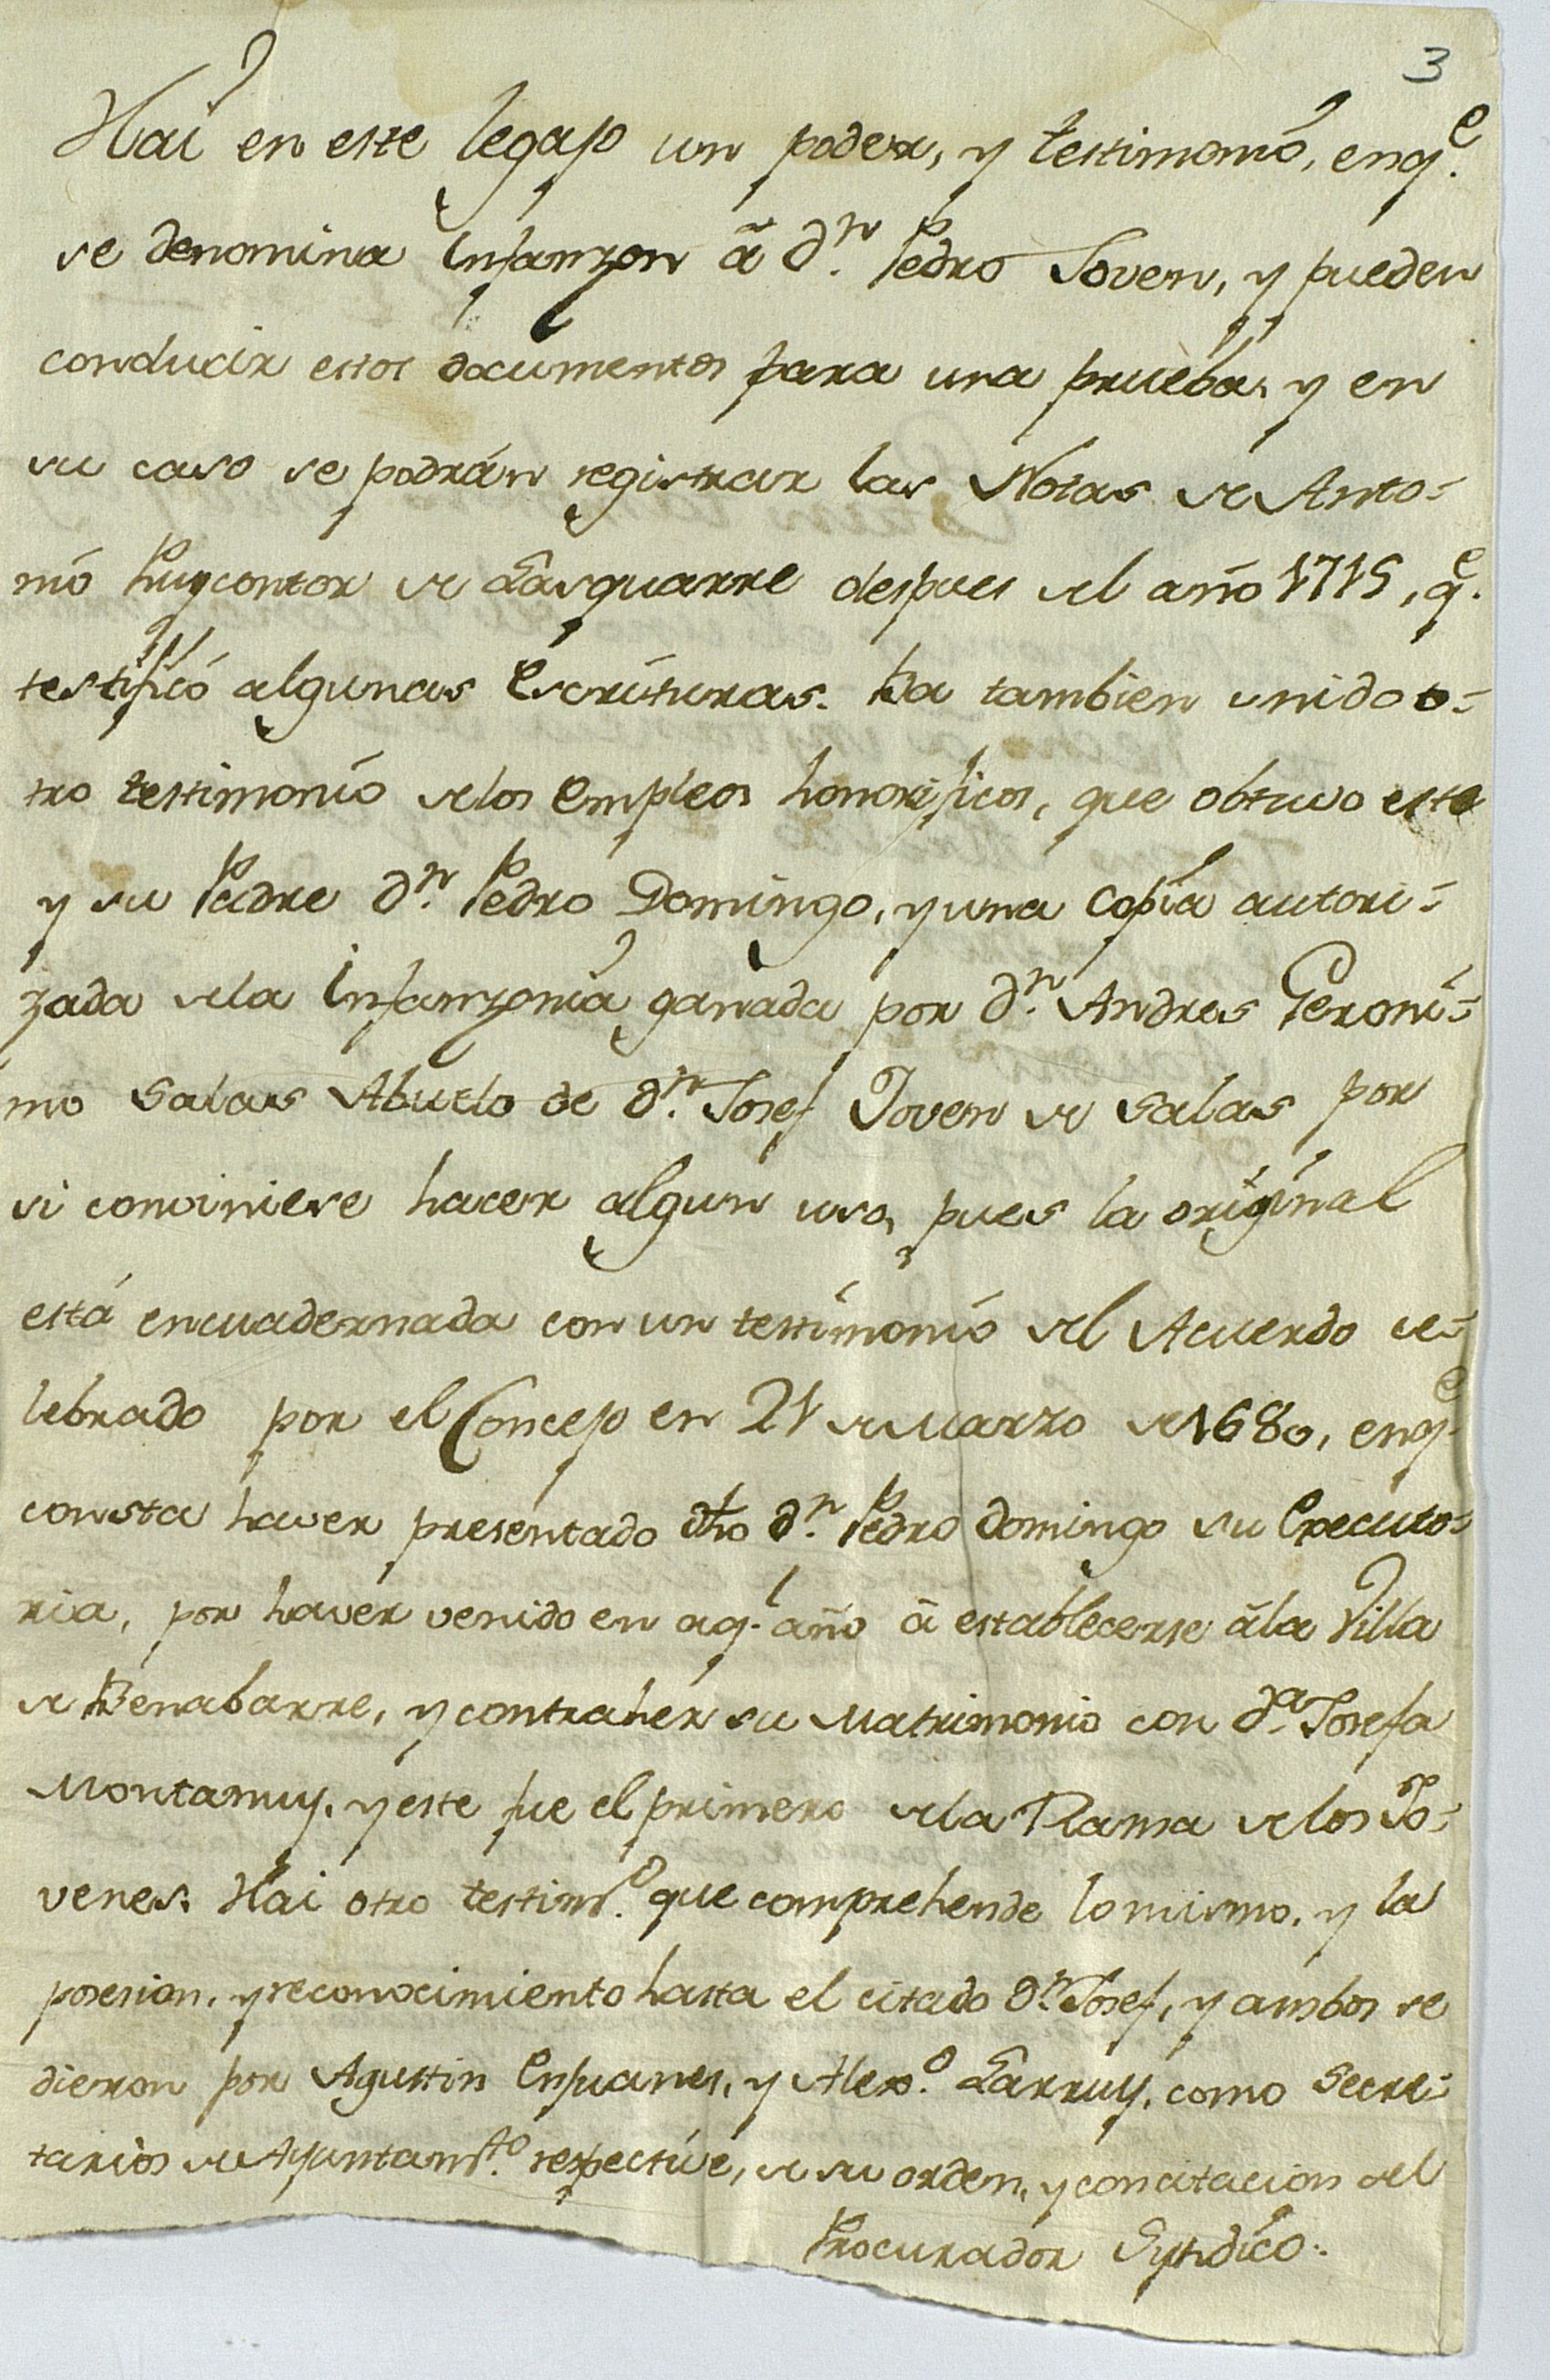 3
Hai en este legajo un poder, y testimonio, enq.e
se denomina Infanzon â d.n Pedro Joven, y pueden
conducir estos documentos para una prueba, y en
su caso se podrán registrar las Notas de Anto=
nio Puycontor de Lasquarre despues del año 1715, q.e
testificó algunas Escrituras. Va tambien unido o=
tro testimonio delos Empleos honorificos, que obtuvo este
y su Padre d.n Pedro Domingo, y una Copia autori=
zada dela Infanzonia ganada por d.n Andres Geroni=
mo Salas Abuelo de d.n Josef Joven de Salas por
si conviniese hacer algun uso, pues la original
está encuadernada con un testimonio del Acuerdo ce=
lebrado por el Concejo en 21 de Marzo de 1680, enq.e
consta haver presentado dho d.n Pedro Domingo su Executo=
ria, por haver venido en aq.l año â establecerse âla Villa
de Benabarre, y contraher su Matrimonio con d.a Josefa
Montanuy, y este fue el primero dela Rama delos Jo=
venes. Hai otro testim.o que comprehende lo mismo, y la
posesion, y reconocimiento hasta el citado d.n Josef, y ambos se
dieron por Agustin Enjuanes, y Alex.o Larruy, como Secre=
tarios de Ayuntam.to respective, de su orden, y con citacion del
Procurador Syndico.